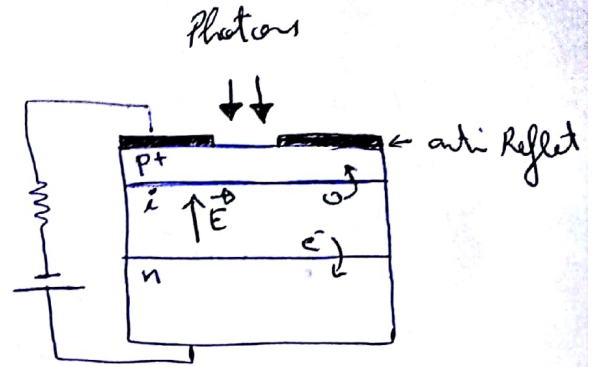 Photons
← anti Reflet
p+
i
E
e-
n